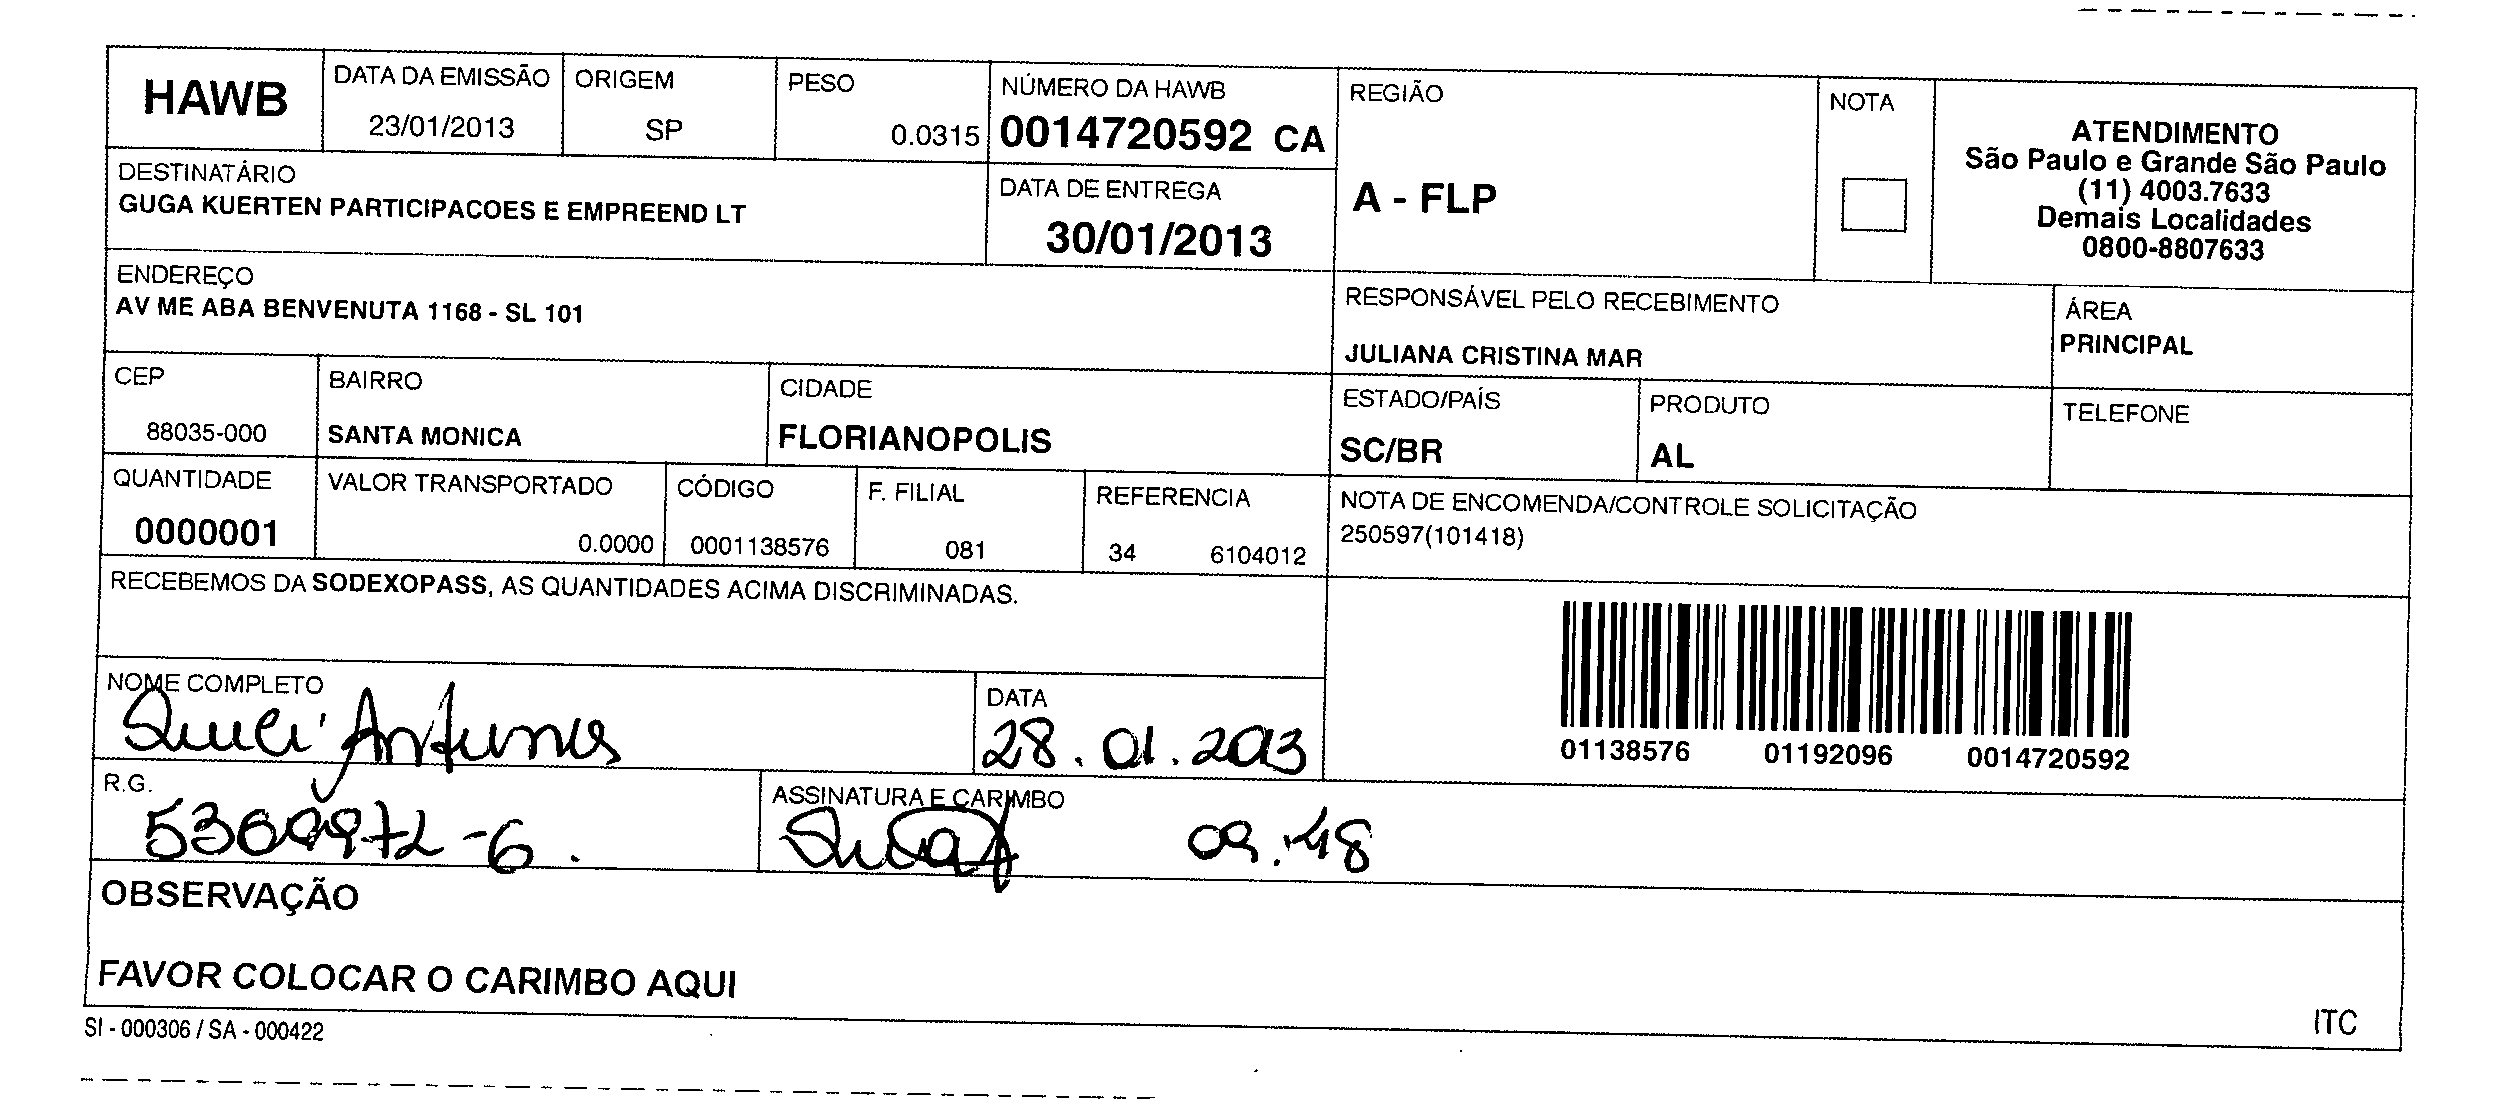 HAWB
DATA DA EMISSÃO
23/01/2013
ORIGEM
SP
PESO
0.0315
NÚMERO DA HAWB
0014720592 CA
REGIÃO
A - FLP
NOTA
ATENDIMENTO
São Paulo e Grande São Paulo
(11) 4003.7633
Demais Localidades
0800-8807633
DESTINATÁRIO
GUGA KUERTEN PARTICIPACOES E EMPREEND LT
DATA DE ENTREGA
30/01/2013
ENDEREÇO
AV ME ABA BENVENUTA 1168 - SL 101
RESPONSÁVEL PELO RECEBIMENTO
JULIANA CRISTINA MAR
ÁREA
PRINCIPAL
CEP
88035-000
BAIRRO
SANTA MONICA
CIDADE
FLORIANOPOLIS
ESTADO/PAÍS
SC/BR
PRODUTO
AL
TELEFONE
QUANTIDADE
0000001
VALOR TRANSPORTADO
0.0000
CÓDIGO
0001138576
F. FILIAL
081
REFERENCIA
34 6104012
NOTA DE ENCOMENDA/CONTROLE SOLICITAÇÃO
250597(101418)
RECEBEMOS DA SODEXOPASS, AS QUANTIDADES ACIMA DISCRIMINADAS.
01138576 01192096 0014720592
NOME COMPLETO
Antunes
DATA
28.01.2013
R.G.
ASSINATURA E CARIMBO
09:48
OBSERVAÇÃO
FAVOR COLOCAR O CARIMBO AQUI
ITC
SI - 000306 / SA - 000422